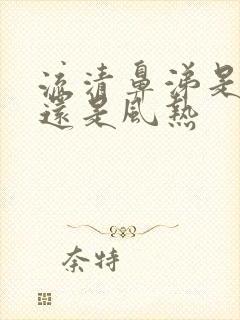 流清鼻涕是
還是風熱
奈特